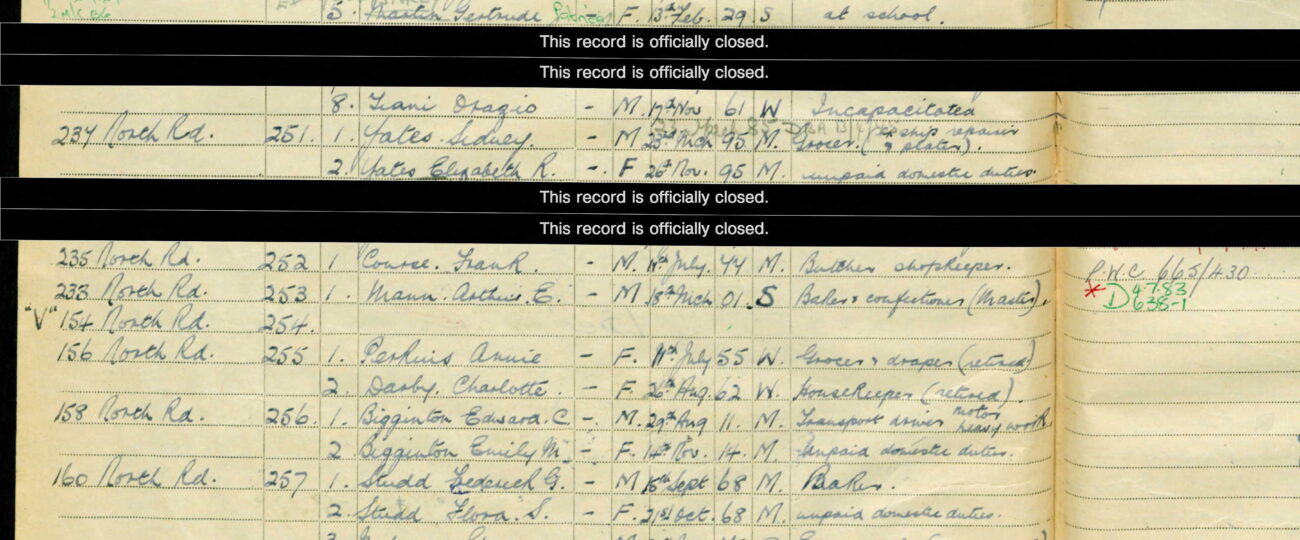 2 M/C B6
5. Martin Gertrude Patricia F. 13th Feb. 29 S at school.
This record is officially closed.
This record is officially closed.
8. Trani Orazio - M. 17th Nov 61 W Incapacitated
234 North Rd. 251. 1. Yates. Sidney. - M 23rd Mch 95 M. Grocer. (ship repairer & plater).
2. Yates Elizabeth R. - F 26th Nov. 95 M. unpaid domestic duties.
This record is officially closed.
This record is officially closed.
235 North Rd. 252 1. Course. Frank. - M. July. 44 M. Butcher shopkeeper. P.W.C 665/430
233 North Rd. 253 1. Mann. Arthur. E. - M 18th Mch 01. S Baker & confectioner (Master). * D 4783 638-1
"V" 154 North Rd. 254.
156 North Rd. 255 1. Perkins Annie - F. 11th July 55 W. Grocer & draper (retired)
2. Darby. Charlotte. - F. 26th Aug. 62 W. Housekeeper (retired).
158 North Rd. 256. 1. Bigginton Edward. C - M. 29th Aug 11. M. Transport driver motor heavy work.
2 Bigginton Emily M. - F. 14th Nov. 14. M. Unpaid domestic duties.
160 North Rd. 257 1. Studd Federick G. - M 15th Sept 68 M. Baker.
2. Studd Flora. S. - F. 21st Oct. 68 M. unpaid domestic duties.